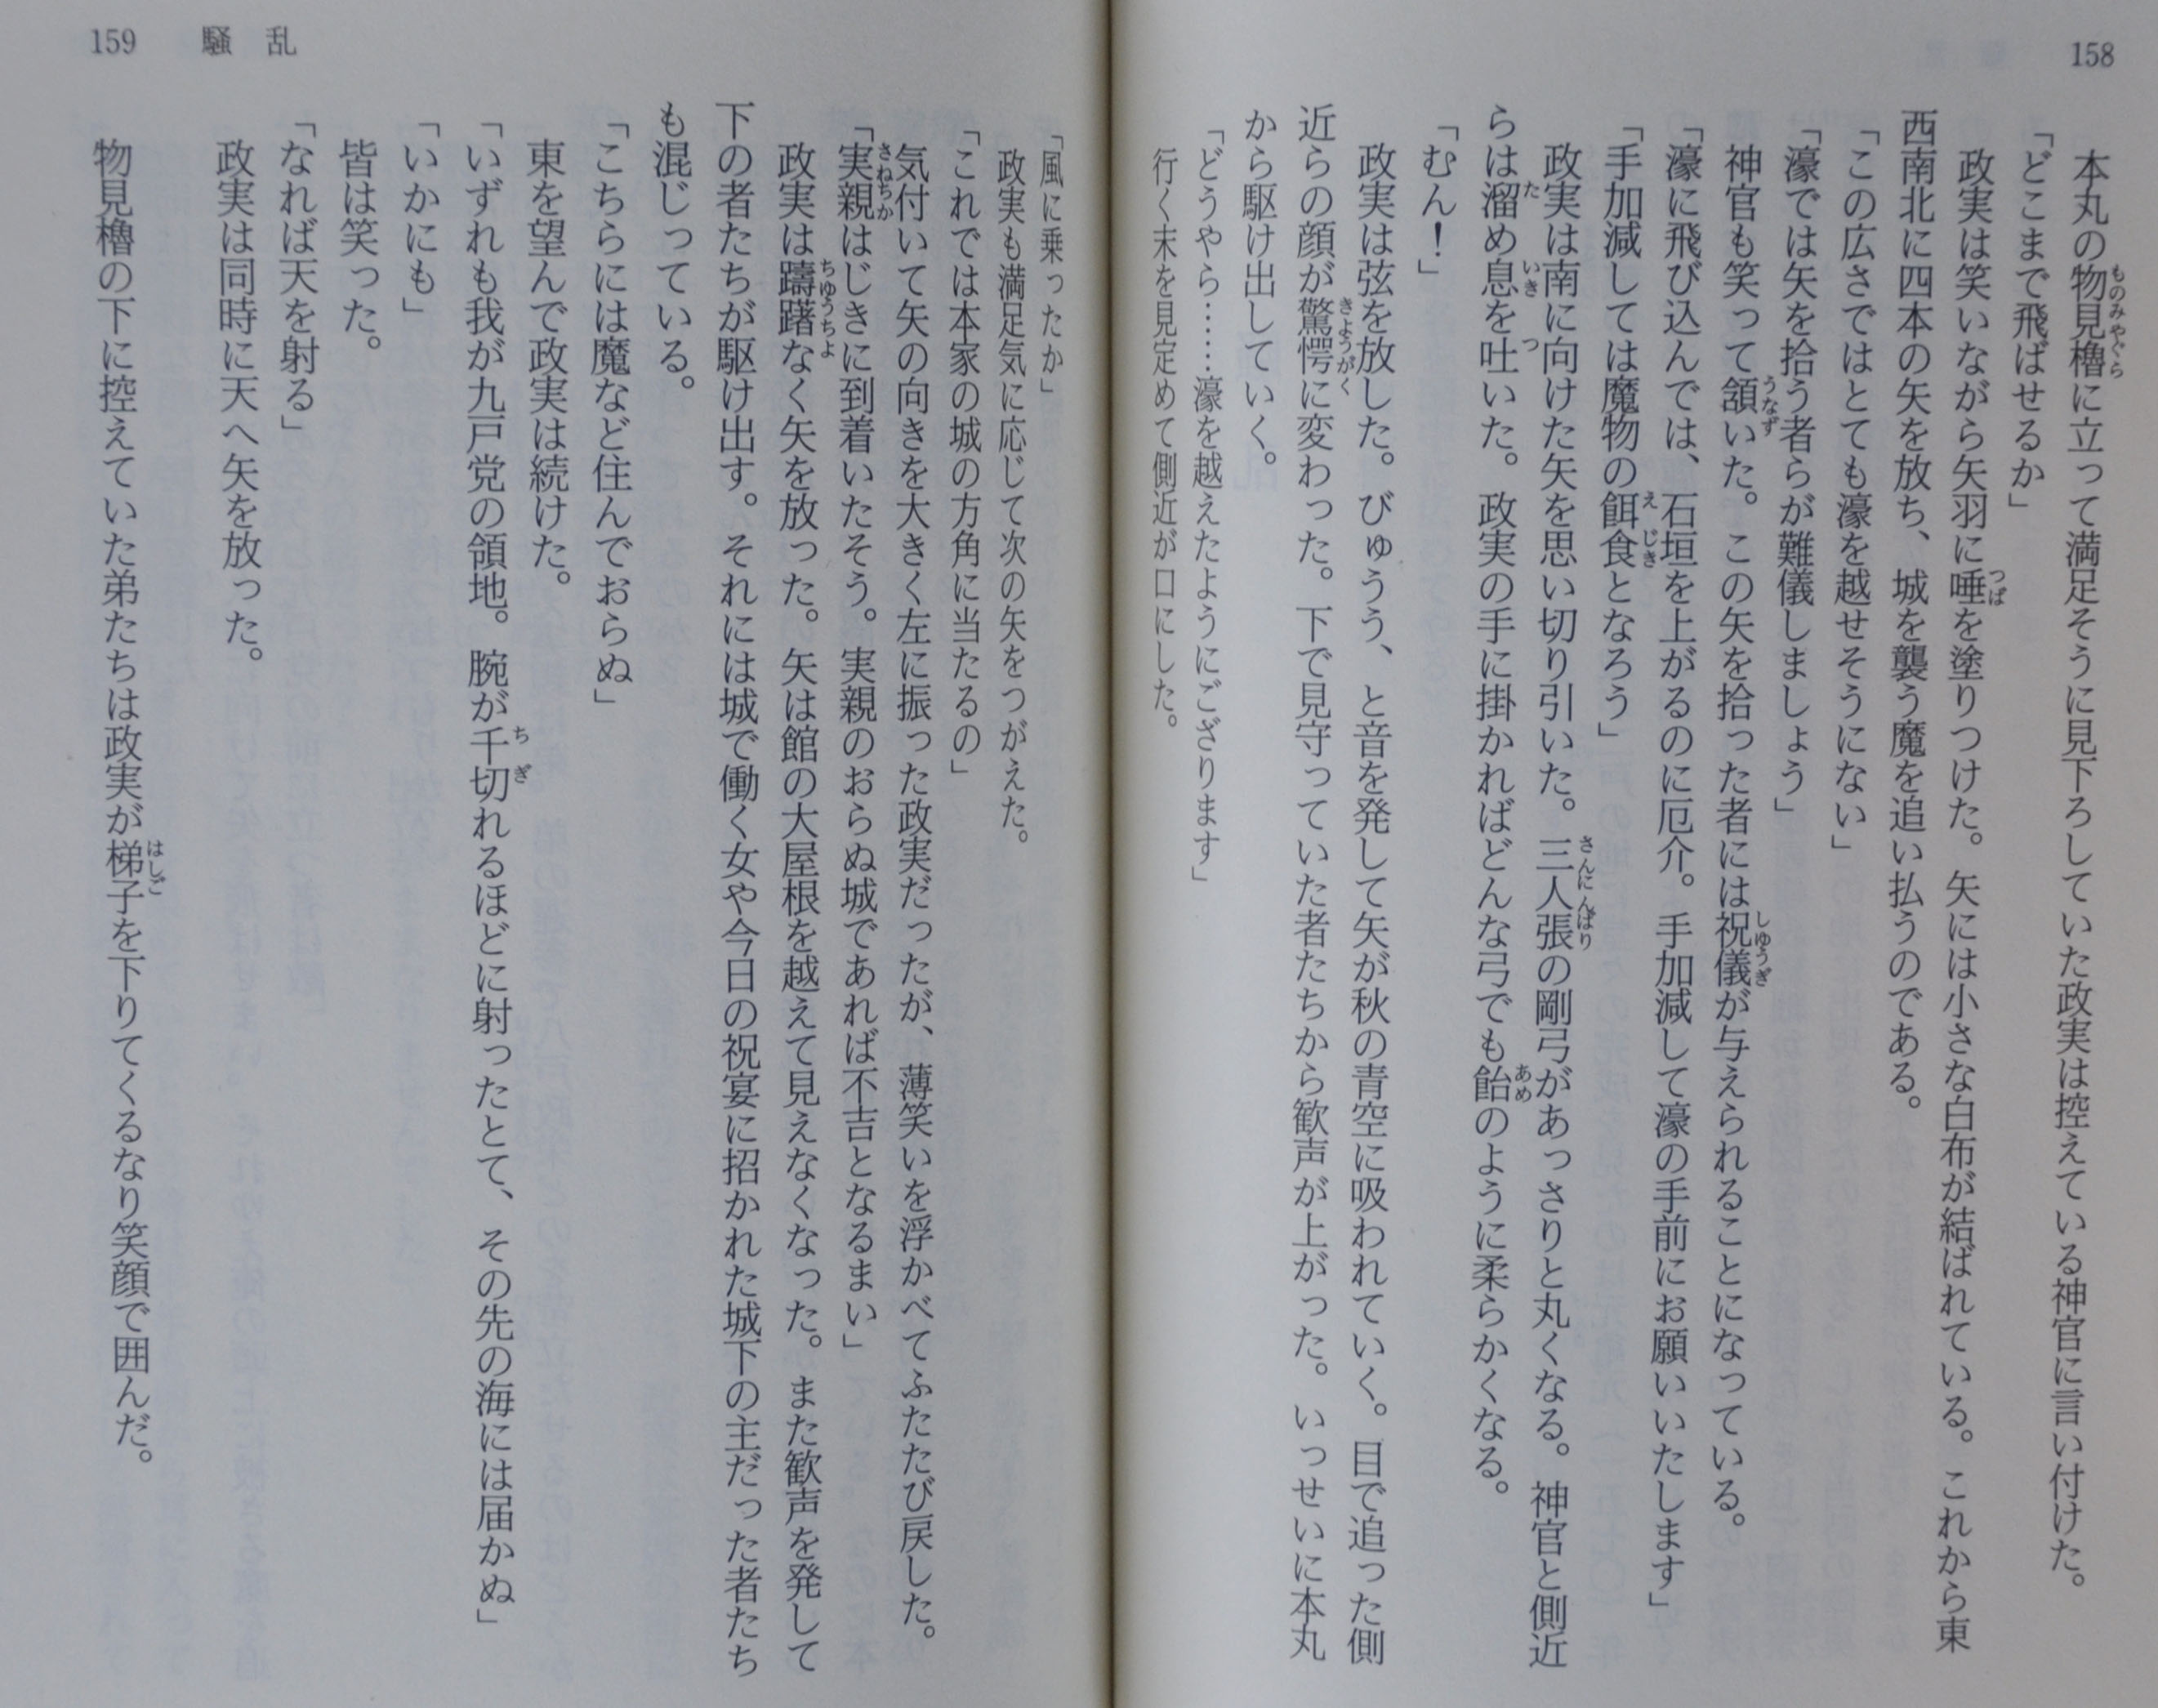 158
本丸の物見櫓に立って満足そうに見下ろしていた政実は控えている神官に言い付けた。
「どこまで飛ばせるか」
政実は笑いながら矢羽に唾を塗りつけた。矢には小さな白布が結ばれている。これから東
西南北に四本の矢を放ち、城を襲う魔を追い払うのである。
「この広さではとても濠を越せそうにない」
「濠では矢を拾う者らが難儀しましょう」
神官も笑って頷いた。この矢を拾った者には祝儀が与えられることになっている。
「濠に飛び込んでは、石垣を上がるのに厄介。手加減して濠の手前にお願いいたします」
「手加減しては魔物の餌食となろう」
政実は南に向けた矢を思い切り引いた。三人張の剛弓があっさりと丸くなる。神官と側近
らは溜め息を吐いた。政実の手に掛かればどんな弓でも飴のように柔らかくなる。
「むん！」
政実は弦を放した。びゅうう、と音を発して矢が秋の青空に吸われていく。目で追った側
近らの顔が驚愕に変わった。下で見守っていた者たちから歓声が上がった。いっせいに本丸
から駆け出していく。
「どうやら……濠を越えたようにござります」
行く末を見定めて側近が口にした。
159 騒乱
「風に乗ったか」
政実も満足気に応じて次の矢をつがえた。
「これでは本家の城の方角に当たるの」
気付いて矢の向きを大きく左に振った政実だったが、薄笑いを浮かべてふたたび戻した。
「実親はじきに到着いたそう。実親のおらぬ城であれば不吉となるまい」
政実は躊躇なく矢を放った。矢は館の大屋根を越えて見えなくなった。また歓声を発して
下の者たちが駆け出す。それには城で働く女や今日の祝宴に招かれた城下の主だった者たち
も混じっている。
「こちらには魔など住んでおらぬ」
東を望んで政実は続けた。
「いずれも我が九戸党の領地。腕が千切れるほどに射ったとて、その先の海には届かぬ」
「いかにも」
皆は笑った。
「なれば天を射る」
政実は同時に天へ矢を放った。
物見櫓の下に控えていた弟たちは政実が梯子を下りてくるなり笑顔で囲んだ。